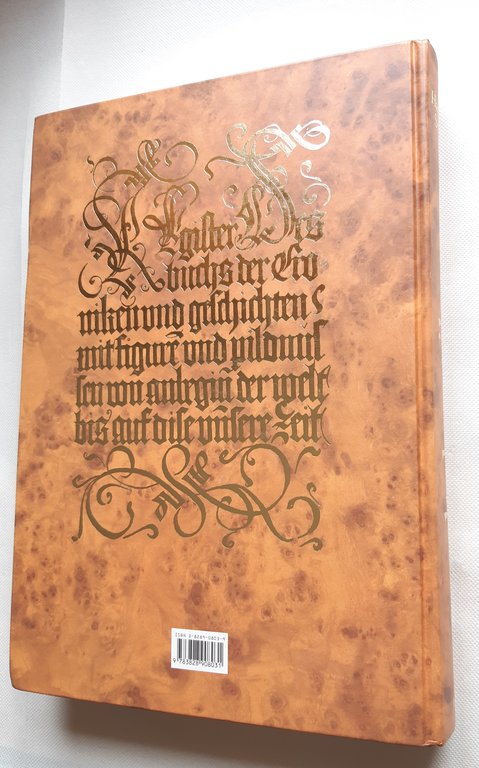 Register Des
buchs der Cro
niken vnd geschichten
mit figurẽ vnd pildnus
sen von anbegiñ der welt
bis auf dise vnsere zeit
ISBN 3-8289-0803-4
9 783828 908031